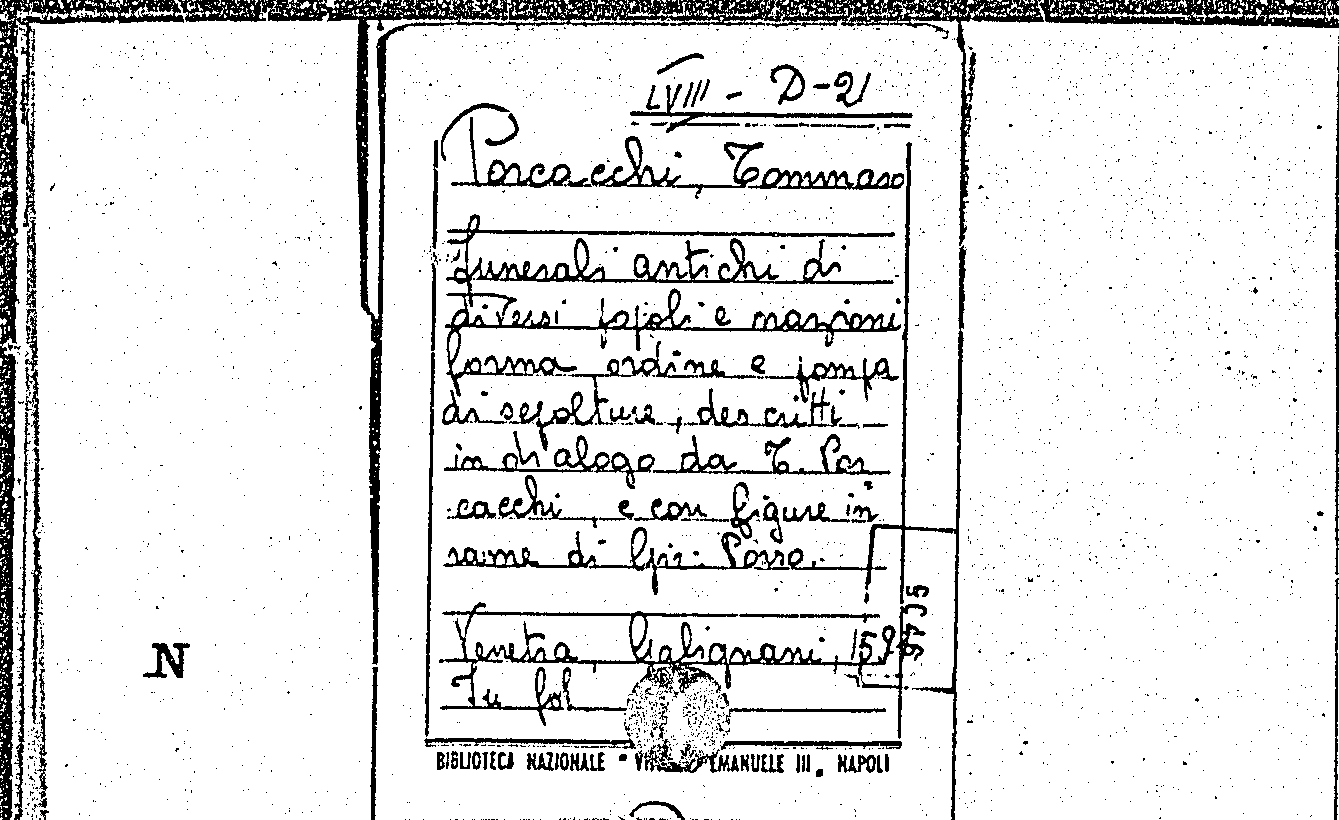 LVIII - D-21
Porcacchi, Tommaso
Funerali antichi di
diversi popoli e nazioni
forma ordine e pompa
di sepolture, descritti
in dialogo da T. Por
cacchi, e con figure in
rame di Gir. Porro.
Venetia, Galignani, 159
In fol
9705
N
BIBLIOTECA NAZIONALE " EMANUELE III. NAPOLI